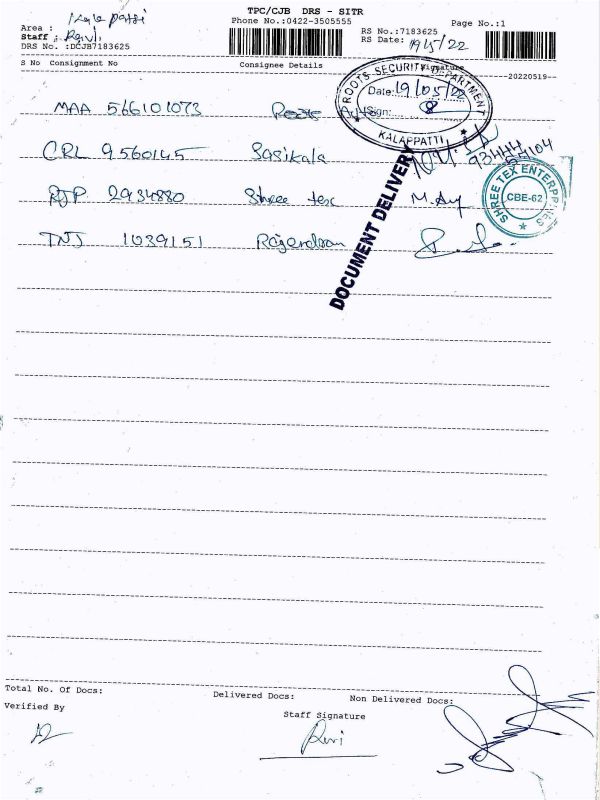 TPC/CJB DRS - SITR
Phone No.:0422-3505555
Page No.:1
Area : Kala patti
Staff : Ravi
DRS No. :DCJB7183625
RS No.:7183625
RS Date: 19/5/22
S No Consignment No Consignee Details Signature
20220519
MAA 566101073
CRL 9560145 Sasikala
RJP 2934880 Shree tex
TNJ 1039151 Rajendran
ROOTS SECURITY DEPARTMENT
Date: 19/05/22
Sign:
KALAPPATTI
DOCUMENT DELIVERY
SHREE TEX ENTERPRISES
CBE-62
Total No. Of Docs:
Delivered Docs:
Non Delivered Docs:
Verified By
Staff Signature
Ravi